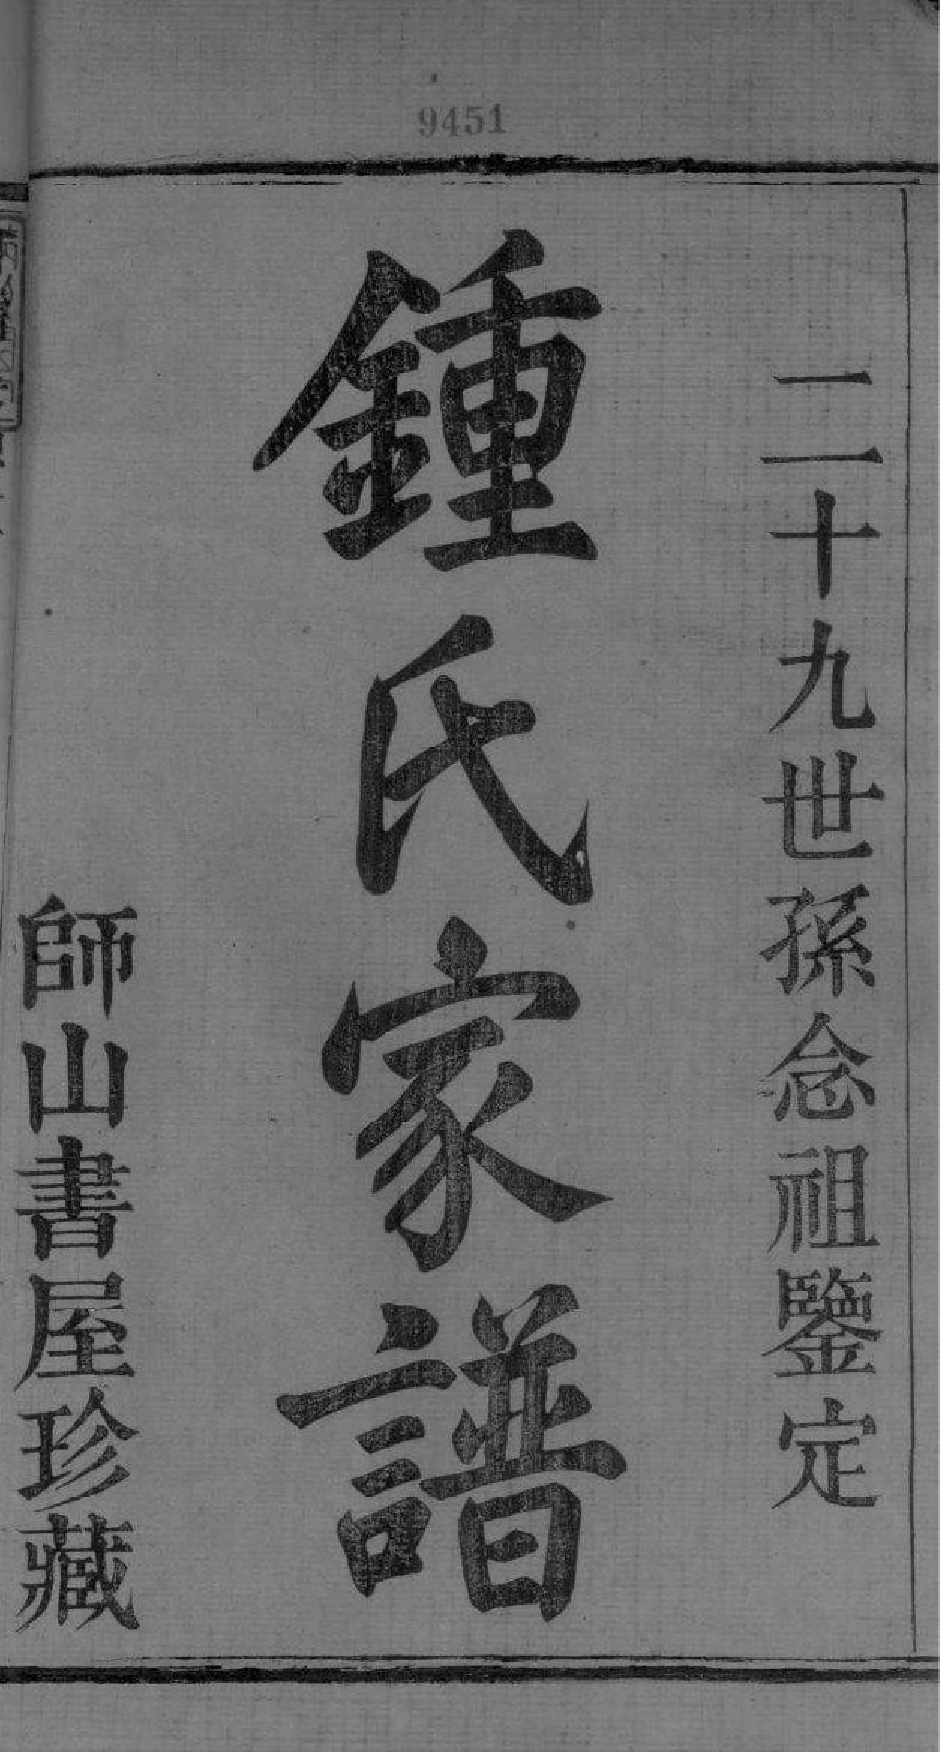 9451
二十九世孫念祖鑒定
鍾氏家譜
師山書屋珍藏